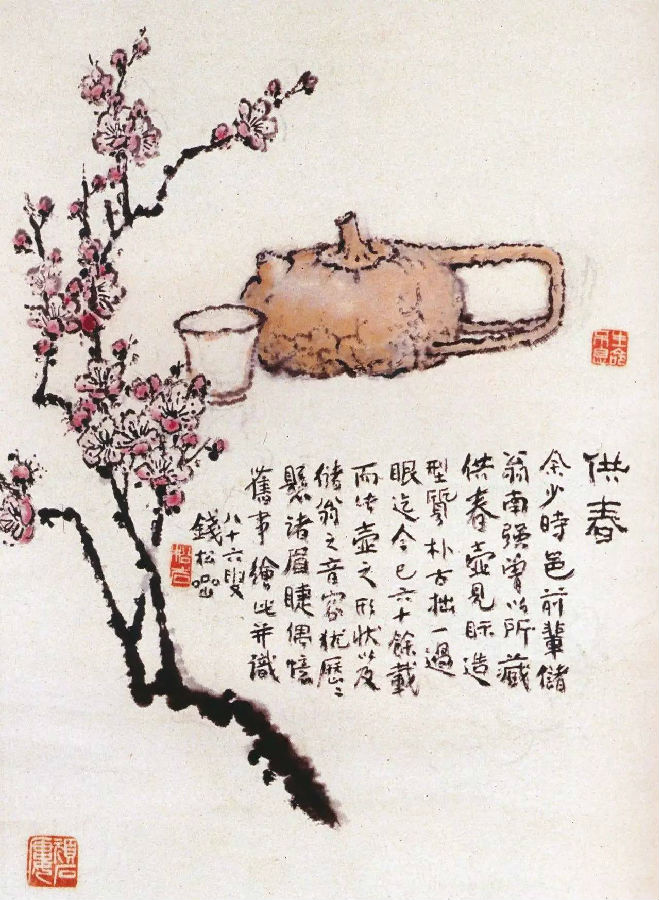 供春
余少時邑前輩儲
翁南强曾以所藏
供春壺見眎造
型質朴古拙一過
眼迄今已六十餘載
而此壺之形狀以及
儲翁之音容犹歷々
懸諸眉睫偶憶
舊事繪此并識
八十六叟
錢松嵒